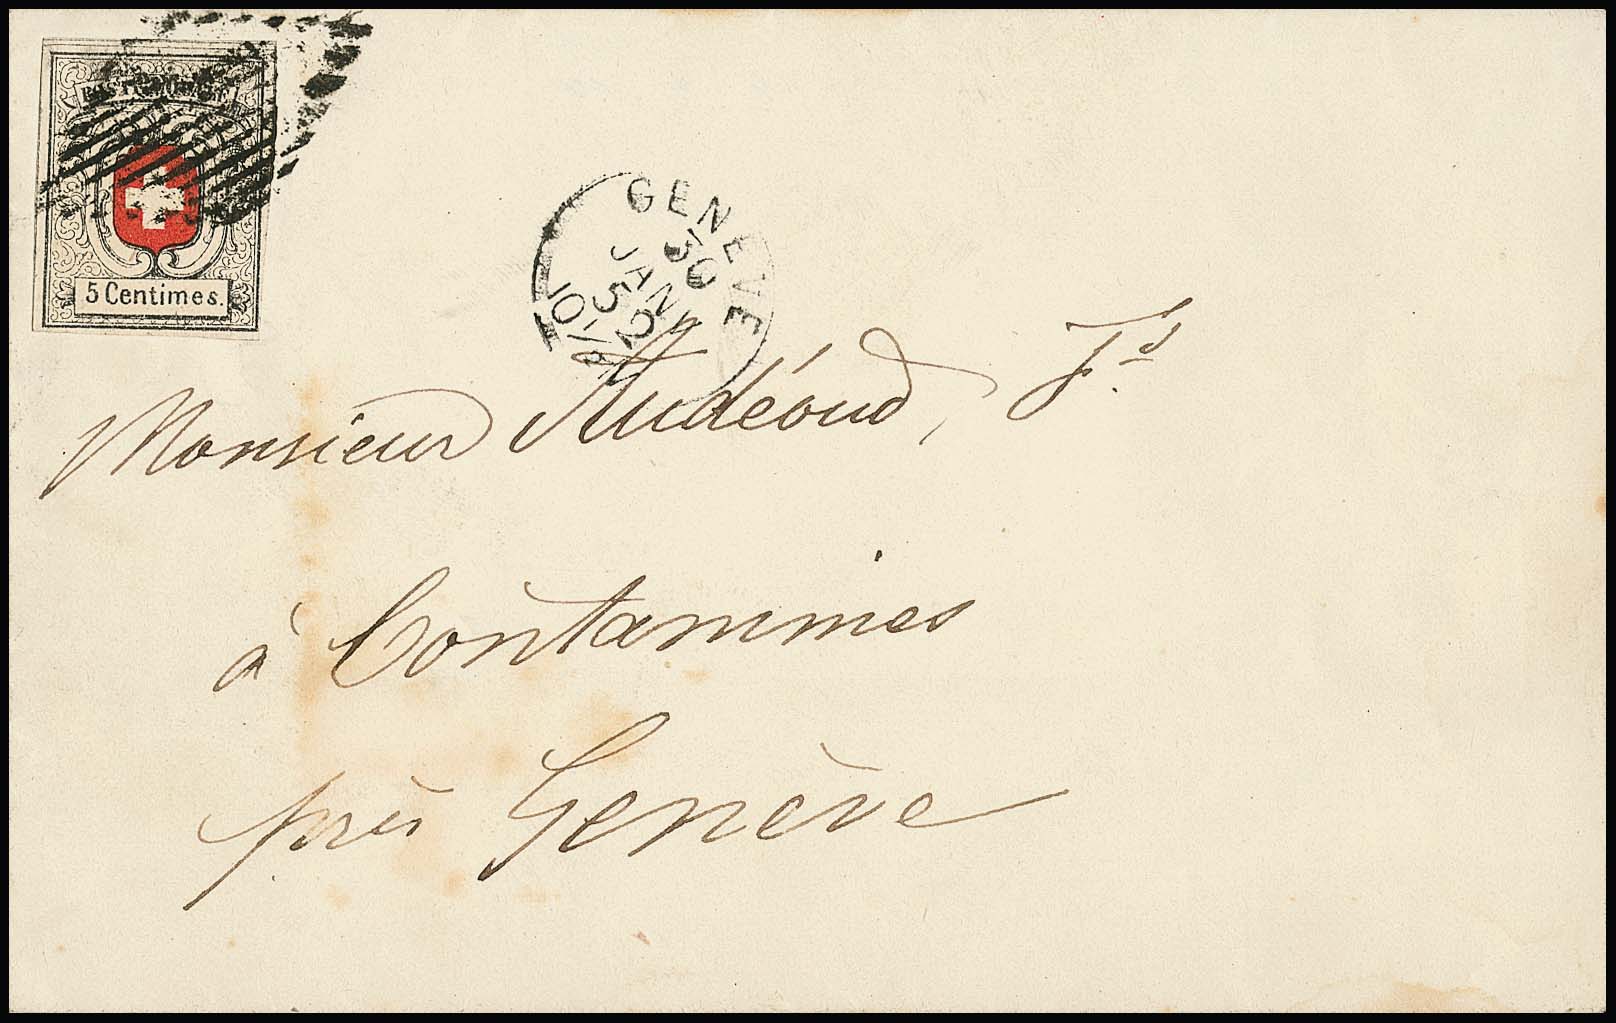 POSTE LOCALE
5 Centimes.
GENÈVE
30
JAN
52
Monsieur Audéoud, Fs
à Contammines
près Genève